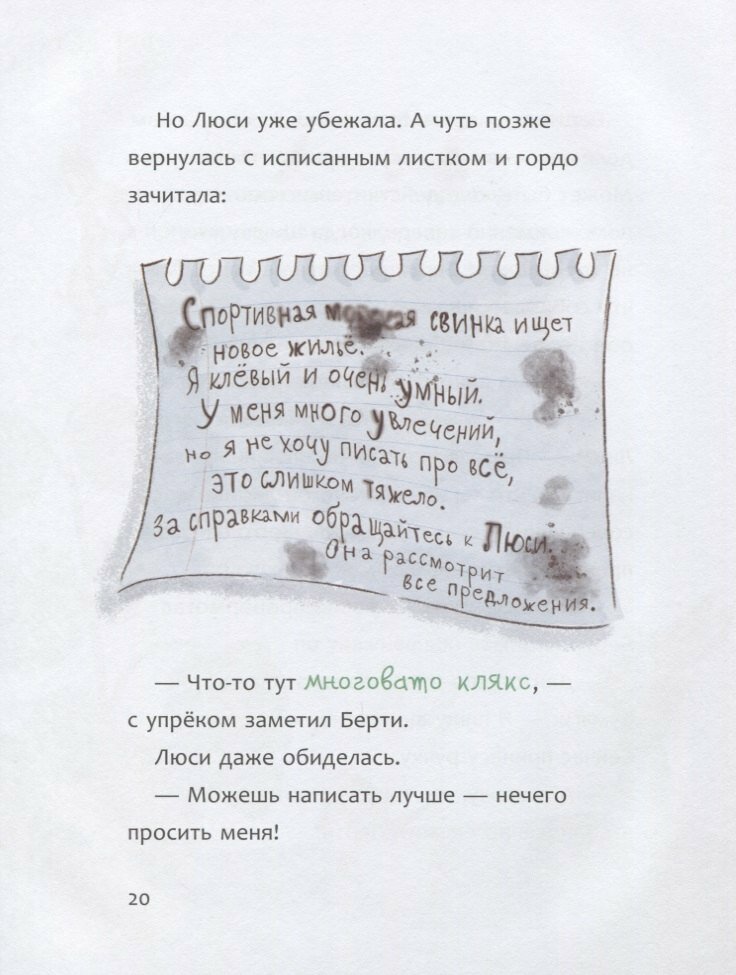 Но Люси уже убежала. А чуть позже
вернулась с исписанным листком и гордо
зачитала:
Спортивная морская свинка ищет
новое жильё.
Я клёвый и очень умный.
У меня много увлечений,
но я не хочу писать про всё,
это слишком тяжело.
За справками обращайтесь к Люси.
Она рассмотрит
все предложения.
— Что-то тут многовато клякс, —
с упрёком заметил Берти.
Люси даже обиделась.
— Можешь написать лучше — нечего
просить меня!
20